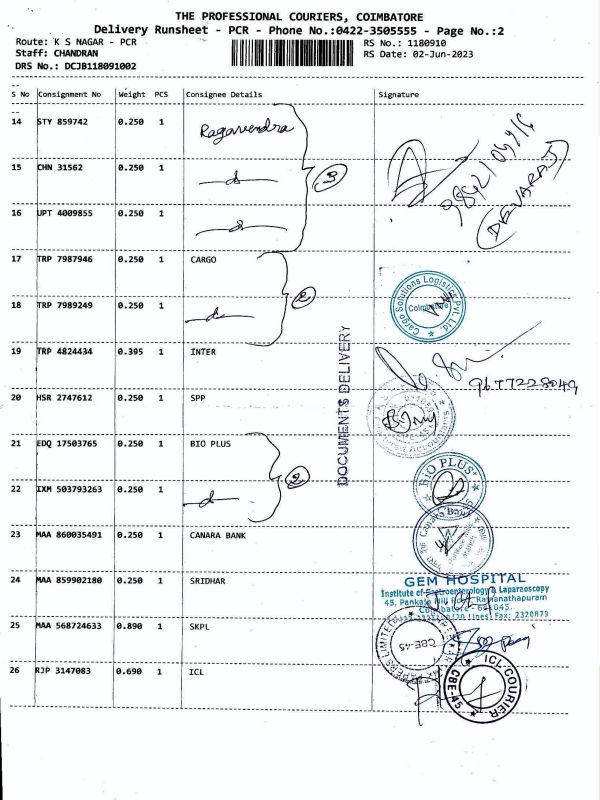 THE PROFESSIONAL COURIERS, COIMBATORE
Delivery Runsheet - PCR - Phone No.:0422-3505555 - Page No.:2
Route: K S NAGAR - PCR RS No.: 1180910
Staff: CHANDRAN RS Date: 02-Jun-2023
DRS No.: DCJB118091002
S No Consignment No Weight PCS Consignee Details Signature
14 STY 859742 0.250 1 Ragavendra
15 CHN 31562 0.250 1
16 UPT 4009855 0.250 1
3
(DEVARAJ)
17 TRP 7987946 0.250 1 CARGO
18 TRP 7989249 0.250 1
2
Cargo Solutions Logistics Pvt. Ltd.
Coimbatore
DOCUMENTS DELIVERY
19 TRP 4824434 0.395 1 INTER
9677228049
20 HSR 2747612 0.250 1 SPP
Accountants
21 EDQ 17503765 0.250 1 BIO PLUS
BIO PLUS
22 IXM 503793263 0.250 1
2
23 MAA 860035491 0.250 1 CANARA BANK
Canara Bank
24 MAA 859902180 0.250 1 SRIDHAR
GEM HOSPITAL
Institute of Gastroenterology & Laparoscopy
45, Pankaja Mill Road, Ramanathapuram
Coimbatore - 641045.
(20 Lines) Fax: 2320879
25 MAA 568724633 0.890 1 SKPL
PAPERS LIMITED
CBE-45
26 RJP 3147083 0.690 1 ICL
ICL COURIER
CBE-45